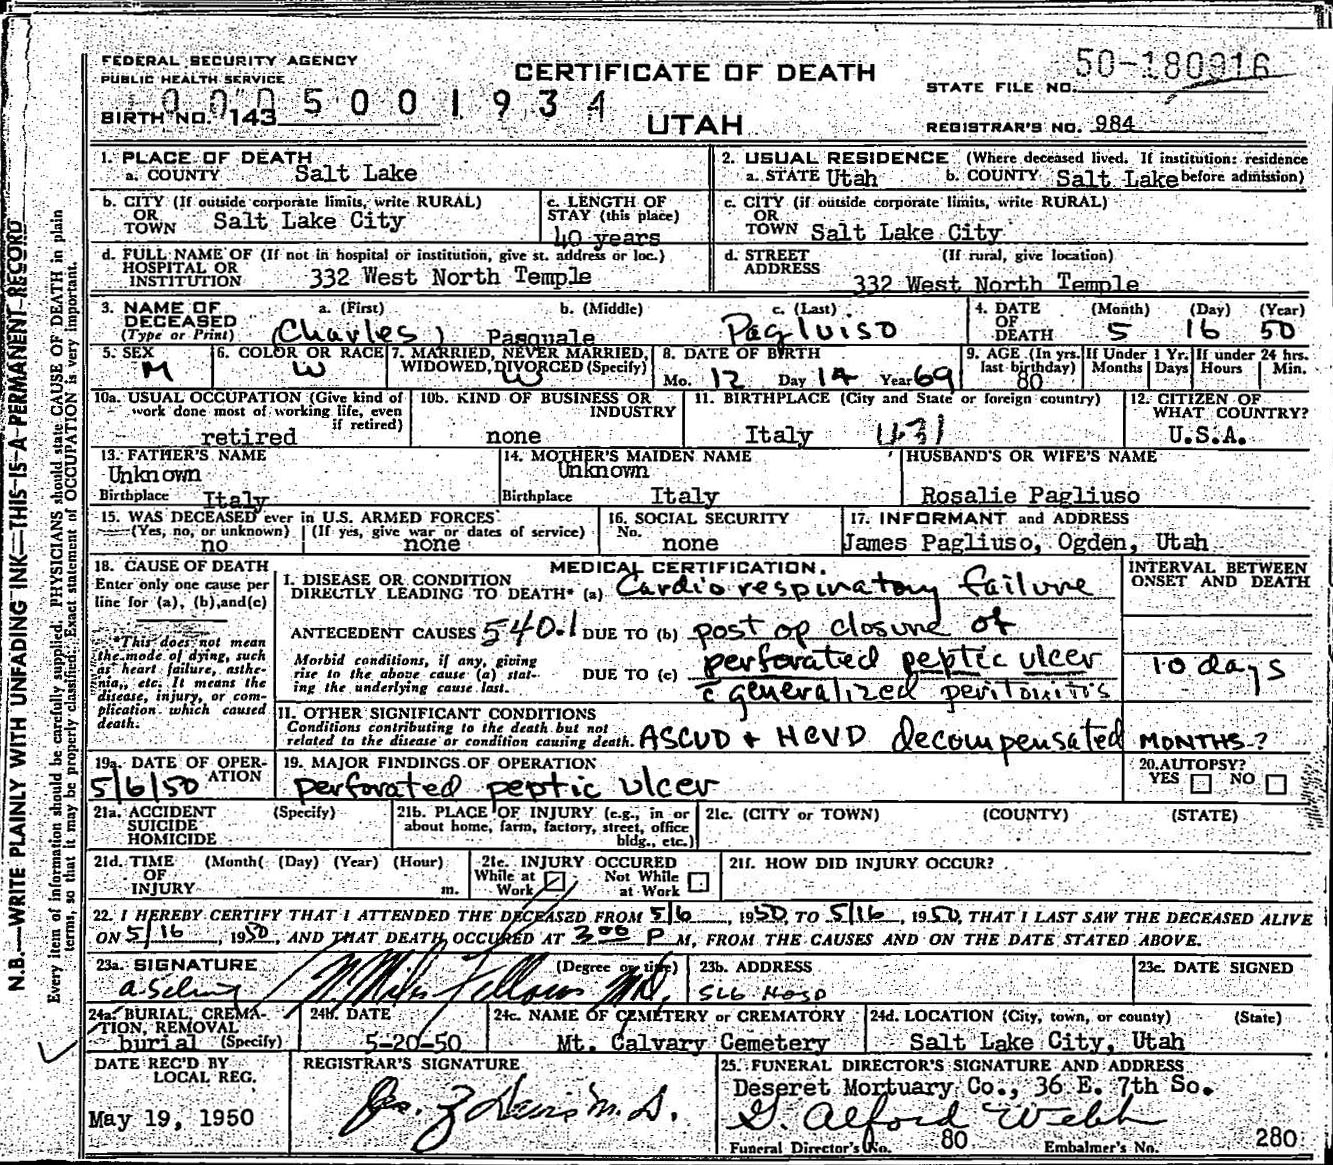 FEDERAL SECURITY AGENCY
PUBLIC HEALTH SERVICE
CERTIFICATE OF DEATH
UTAH
50-180916
STATE FILE NO.
BIRTH NO. 143
5 0 0 1 9 3 4
REGISTRAR'S NO. 984
1. PLACE OF DEATH
a. COUNTY Salt Lake
2. USUAL RESIDENCE (Where deceased lived. If institution: residence
a. STATE Utah b. COUNTY Salt Lake before admission)
b. CITY (If outside corporate limits, write RURAL)
OR
TOWN Salt Lake City
c. LENGTH OF
STAY (this place)
40 years
c. CITY (if outside corporate limits, write RURAL)
OR
TOWN Salt Lake City
d. FULL NAME OF (If not in hospital or institution, give st. address or loc.)
HOSPITAL OR
INSTITUTION 332 West North Temple
d. STREET (If rural, give location)
ADDRESS
332 West North Temple
3. NAME OF a. (First) b. (Middle) c. (Last)
DECEASED
(Type or Print) (Charles) Pasquale Pagluiso
4. DATE (Month) (Day) (Year)
OF
DEATH 5 16 50
5. SEX
M
6. COLOR OR RACE
W
7. MARRIED, NEVER MARRIED,
WIDOWED, DIVORCED (Specify)
W
8. DATE OF BIRTH
Mo. 12 Day 14 Year 69
9. AGE (In yrs.
last birthday)
80
If Under 1 Yr.
Months Days
If under 24 hrs.
Hours Min.
10a. USUAL OCCUPATION (Give kind of
work done most of working life, even
if retired)
retired
10b. KIND OF BUSINESS OR
INDUSTRY
none
11. BIRTHPLACE (City and State or foreign country)
Italy
12. CITIZEN OF
WHAT COUNTRY?
U.S.A.
13. FATHER'S NAME
Unknown
Birthplace Italy
14. MOTHER'S MAIDEN NAME
Unknown
Birthplace Italy
HUSBAND'S OR WIFE'S NAME
Rosalie Pagliuso
15. WAS DECEASED ever in U.S. ARMED FORCES
(Yes, no, or unknown) (If yes, give war or dates of service)
no none
16. SOCIAL SECURITY
No. none
17. INFORMANT and ADDRESS
James Pagliuso, Ogden, Utah
18. CAUSE OF DEATH
Enter only one cause per
line for (a), (b), and (c)
*This does not mean
the mode of dying, such
as heart failure, asthe-
nia, etc. It means the
disease, injury, or com-
plication which caused
death.
MEDICAL CERTIFICATION.
I. DISEASE OR CONDITION
DIRECTLY LEADING TO DEATH* (a) Cardio respiratory failure
ANTECEDENT CAUSES 540.1 DUE TO (b) post op closure of
Morbid conditions, if any, giving
rise to the above cause (a) stat-
ing the underlying cause last.
DUE TO (c) perforated peptic ulcer
c̄ generalized peritonitis
II. OTHER SIGNIFICANT CONDITIONS
Conditions contributing to the death but not
related to the disease or condition causing death. ASCVD + HCVD decompensated
INTERVAL BETWEEN
ONSET AND DEATH
10 days
MONTHS ?
19a. DATE OF OPER-
ATION
5/6/50
19. MAJOR FINDINGS OF OPERATION
perforated peptic ulcer
20. AUTOPSY?
YES NO
21a. ACCIDENT (Specify)
SUICIDE
HOMICIDE
21b. PLACE OF INJURY (e.g., in or
about home, farm, factory, street, office
bldg., etc.)
21c. (CITY or TOWN) (COUNTY) (STATE)
21d. TIME (Month( (Day) (Year) (Hour)
OF
INJURY m.
21e. INJURY OCCURED
While at Not While
Work at Work
21f. HOW DID INJURY OCCUR?
22. I HEREBY CERTIFY THAT I ATTENDED THE DECEASED FROM 5/6, 1950, TO 5/16, 1950, THAT I LAST SAW THE DECEASED ALIVE
ON 5/16, 1950, AND THAT DEATH OCCURED AT 3 00 P M, FROM THE CAUSES AND ON THE DATE STATED ABOVE.
23a. SIGNATURE (Degree or title)
Fellows MD,
23b. ADDRESS
23c. DATE SIGNED
24a. BURIAL, CREMA-
TION, REMOVAL
burial (Specify)
24b. DATE
5-20-50
24c. NAME OF CEMETERY or CREMATORY
Mt. Calvary Cemetery
24d. LOCATION (City, town, or county) (State)
Salt Lake City, Utah
DATE REC'D BY
LOCAL REG.
May 19, 1950
REGISTRAR'S SIGNATURE
M.D.
25. FUNERAL DIRECTOR'S SIGNATURE AND ADDRESS
Deseret Mortuary Co., 36 E. 7th So.
G. Alford Webb
Funeral Director's No. 80 Embalmer's No. 280
N.B.—WRITE PLAINLY WITH UNFADING INK—THIS IS A PERMANENT RECORD
Every item of information should be carefully supplied. PHYSICIANS should state CAUSE OF DEATH in plain
terms, so that it may be properly classified. Exact statement of OCCUPATION is very important.